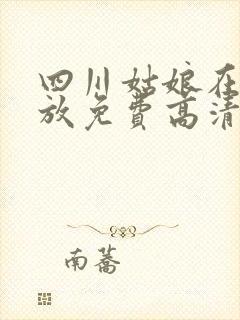 四川姑娘在
放免费高清
南蕎